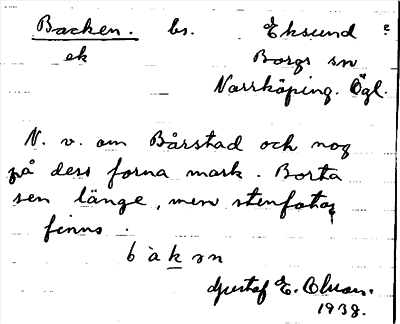 Backen. bs. Eksund e
ek Borgs sn
Norrköping. Ögl.
N. v. om Bårstad och nog
på dess forna mark. Borta
sen länge, men stenfoten
finns.
b à k ən
Gustaf E. Olson.
1938.